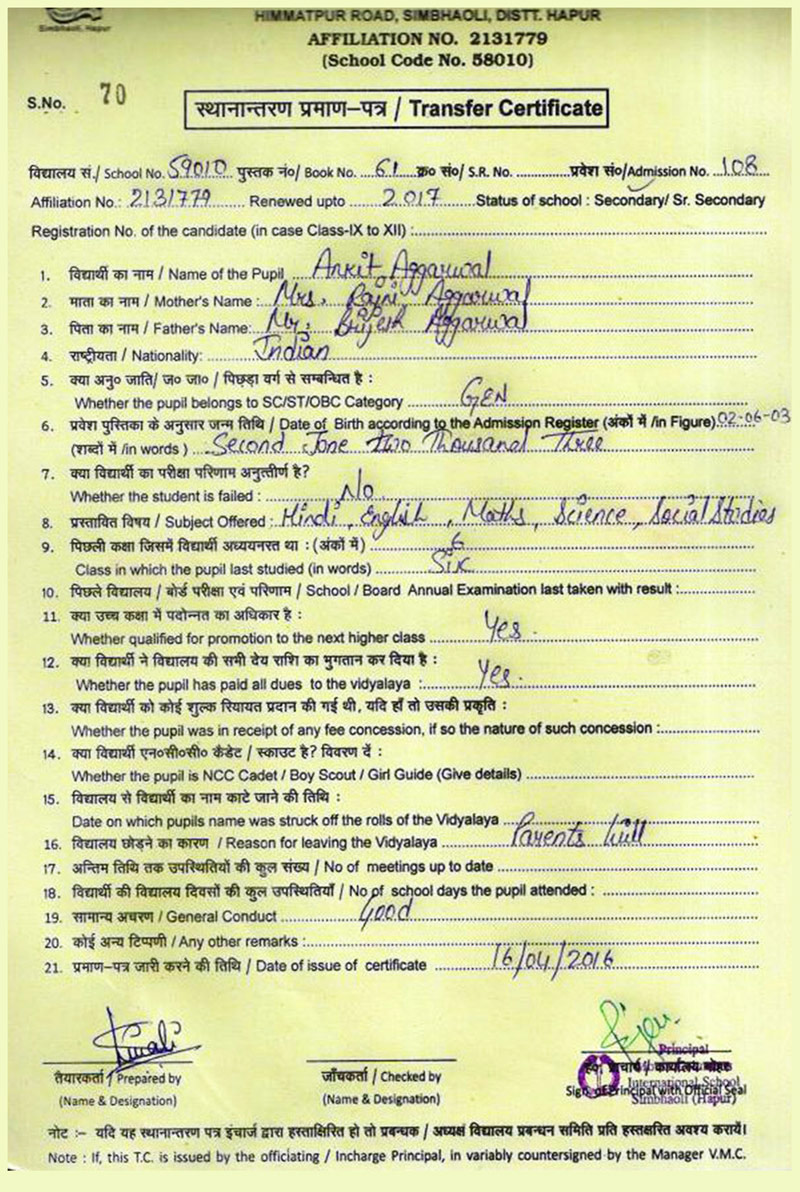 Simbhaoli, Hapur
HIMMATPUR ROAD, SIMBHAOLI, DISTT. HAPUR
AFFILIATION NO. 2131779
(School Code No. 58010)
S.No. 70
स्थानान्तरण प्रमाण–पत्र / Transfer Certificate
विद्यालय सं./ School No. 59010 पुस्तक नं०/ Book No. 61 क्र० सं०/ S.R. No. प्रवेश सं०/Admission No. 108
Affiliation No.: 2131779 Renewed upto 2017 Status of school : Secondary/ Sr. Secondary
Registration No. of the candidate (in case Class-IX to XII) :
1. विद्यार्थी का नाम / Name of the Pupil Ankit Aggarwal
2. माता का नाम / Mother's Name : Mrs. Rajni Aggarwal
3. पिता का नाम / Father's Name: Mr. Brijesh Aggarwal
4. राष्ट्रीयता / Nationality: Indian
5. क्या अनु० जाति/ ज० जा० / पिछड़ा वर्ग से सम्बन्धित है :
Whether the pupil belongs to SC/ST/OBC Category GEN
6. प्रवेश पुस्तिका के अनुसार जन्म तिथि / Date of Birth according to the Admission Register (अंकों में /in Figure) 02-06-03
(शब्दों में /in words ) Second June two Thousand Three
7. क्या विद्यार्थी का परीक्षा परिणाम अनुत्तीर्ण है?
Whether the student is failed : No
8. प्रस्तावित विषय / Subject Offered : Hindi, English, Maths, Science, Social Studies
9. पिछली कक्षा जिसमें विद्यार्थी अध्ययनरत था : (अंकों में) 6
Class in which the pupil last studied (in words) Six
10. पिछले विद्यालय / बोर्ड परीक्षा एवं परिणाम / School / Board Annual Examination last taken with result :
11. क्या उच्च कक्षा में पदोन्नत का अधिकार है :
Whether qualified for promotion to the next higher class Yes.
12. क्या विद्यार्थी ने विद्यालय की सभी देय राशि का भुगतान कर दिया है :
Whether the pupil has paid all dues to the vidyalaya : Yes.
13. क्या विद्यार्थी को कोई शुल्क रियायत प्रदान की गई थी, यदि हाँ तो उसकी प्रकृति :
Whether the pupil was in receipt of any fee concession, if so the nature of such concession :
14. क्या विद्यार्थी एन०सी०सी० कैडेट / स्काउट है? विवरण दें :
Whether the pupil is NCC Cadet / Boy Scout / Girl Guide (Give details)
15. विद्यालय से विद्यार्थी का नाम काटे जाने की तिथि :
Date on which pupils name was struck off the rolls of the Vidyalaya
16. विद्यालय छोड़ने का कारण / Reason for leaving the Vidyalaya Parents Will
17. अन्तिम तिथि तक उपस्थितियों की कुल संख्य / No of meetings up to date
18. विद्यार्थी की विद्यालय दिवसों की कुल उपस्थितियाँ / No of school days the pupil attended :
19. सामान्य अचरण / General Conduct Good
20. कोई अन्य टिप्पणी / Any other remarks :
21. प्रमाण–पत्र जारी करने की तिथि / Date of issue of certificate 16/04/2016
तैयारकर्ता / Prepared by
(Name & Designation)
जाँचकर्ता / Checked by
(Name & Designation)
Principal
ह० प्राचार्य / कार्यालय मोहर
International School
Sign. of Principal with Official Seal
Simbhaoli (Hapur)
नोट :– यदि यह स्थानान्तरण पत्र इंचार्ज द्वारा हस्ताक्षरित हो तो प्रबन्धक / अध्यक्ष विद्यालय प्रबन्धन समिति प्रति हस्तक्षरित अवश्य करायें।
Note : If, this T.C. is issued by the officiating / Incharge Principal, in variably countersigned by the Manager V.M.C.